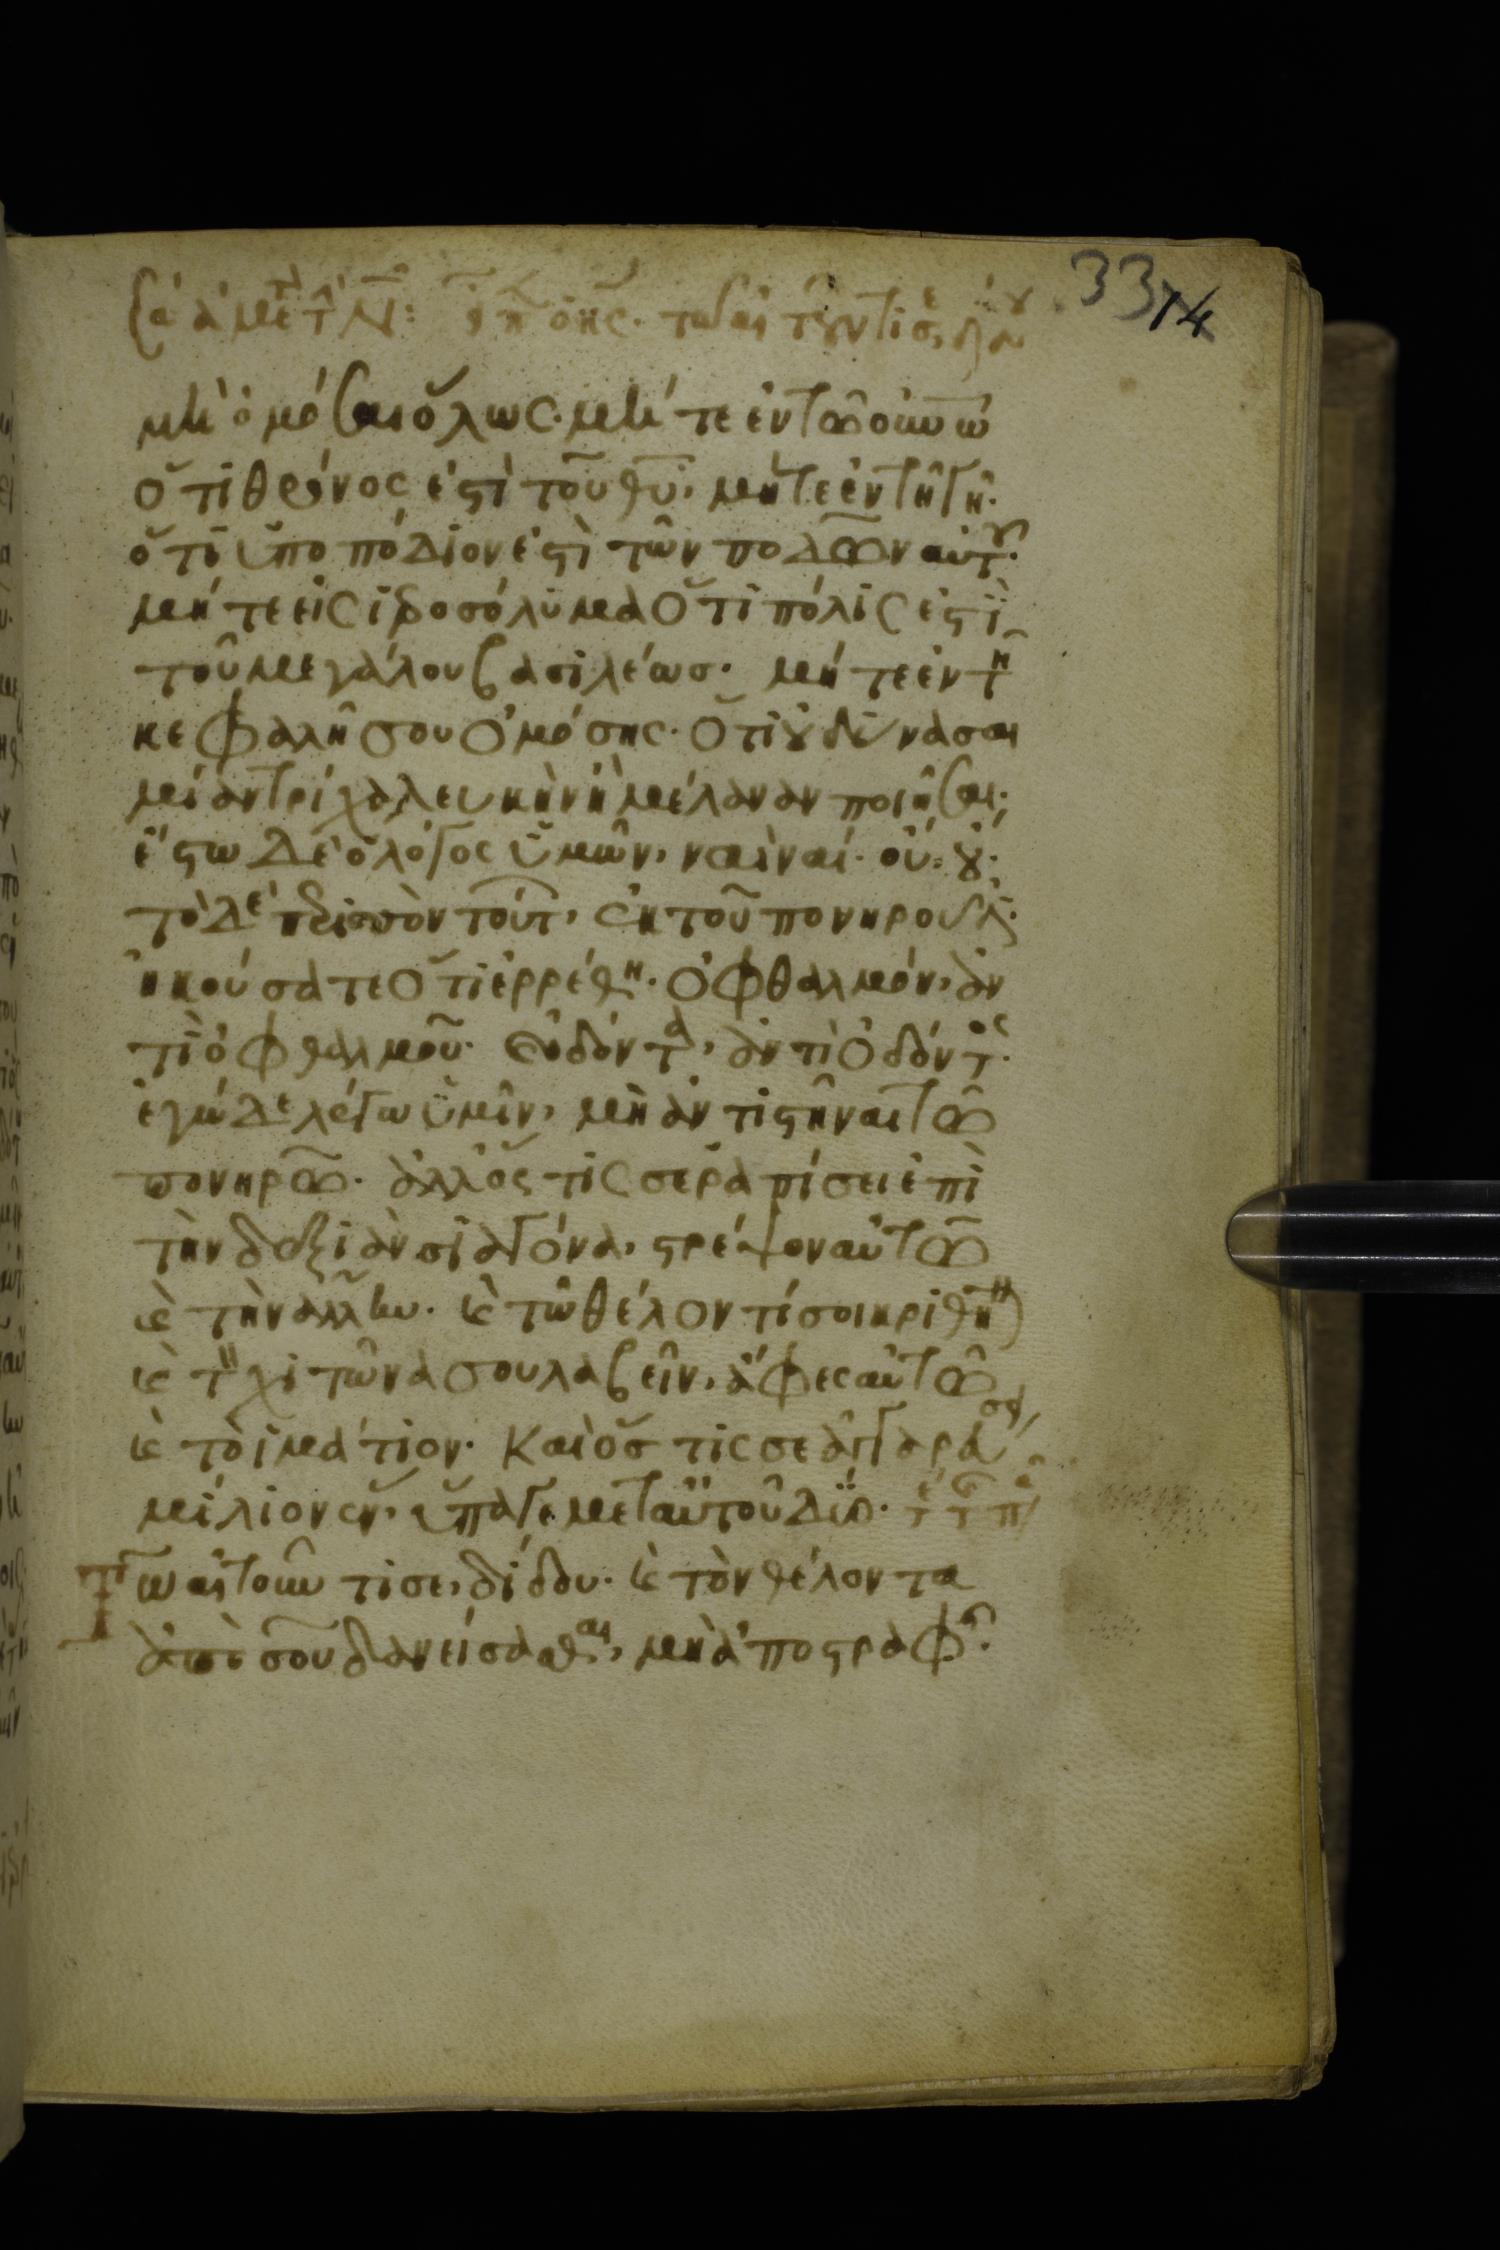 33
14
μὴ ὀμόσαι ὅλως. μήτε ἐν τῶ οὐνῶ
ὅτι θρόνος ἐστὶ τοῦ θυ, μήτε ἐν τῆ γῆ.
ὅτι ὑποπόδιον ἐστὶ τῶν ποδῶν αὐτοῦ.
μήτε εἰς ἱεροσόλυμα ὅτι πόλις ἐστὶ
τοῦ μεγάλου βασιλέως. μήτε ἐν τῆ
κεφαλῆ σου ὀμόσης. ὅτι οὐ δύνασαι
μίαν τρίχα λευκὴν ἢ μέλαναν ποιῆσαι.
ἔστω δὲ ὁ λόγος ὑμῶν, ναὶ ναί. οὔ οὔ.
τὸ δὲ περισσὸν τούτ, ἐκ τοῦ πονηροῦ ἐστ.
ἠκούσατε ὅτι ἐρρέθη. ὀφθαλμόν, ἀν
τὶ ὀφθαλμοῦ. ὀδόντα, ἀντὶ ὀδόντος.
ἐγὼ δὲ λέγω ὑμῖν, μὴ ἀντιστῆναι τῶ
πονηρῶ. ἀλλ' ὅστις σε ῥαπίσει ἐπὶ
τὴν δεξιὰν σιαγόνα, στρέψον αὐτῶ
καὶ τὴν ἄλλην. καὶ τῶ θέλοντί σοι κριθῆν
καὶ τὸν χιτῶνα σου λαβεῖν, ἄφες αὐτῶ
καὶ τὸ ἱμάτιον. καὶ ὅστις σε ἀγγαρεύσει
μίλιον ἕν, ὕπαγε μετ αὐτοῦ δύο.
Τῶ αἰτοῦντί σε, δίδου. καὶ τὸν θέλοντα
ἀπὸ σοῦ δανείσασθαι, μὴ ἀποστραφῆς.